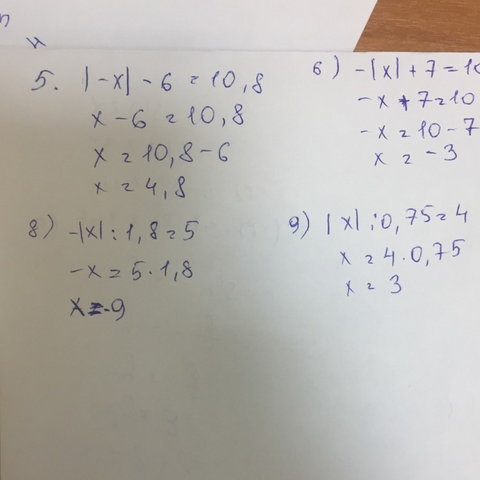 5. |-x| - 6 = 10,8
x - 6 = 10,8
x = 10,8 - 6
x = 4,8
6) -|x| + 7 = 10
-x + 7 = 10
-x = 10 - 7
x = -3
8) -|x| : 1,8 = 5
-x = 5 · 1,8
x = -9
9) |x| : 0,75 = 4
x = 4 · 0,75
x = 3